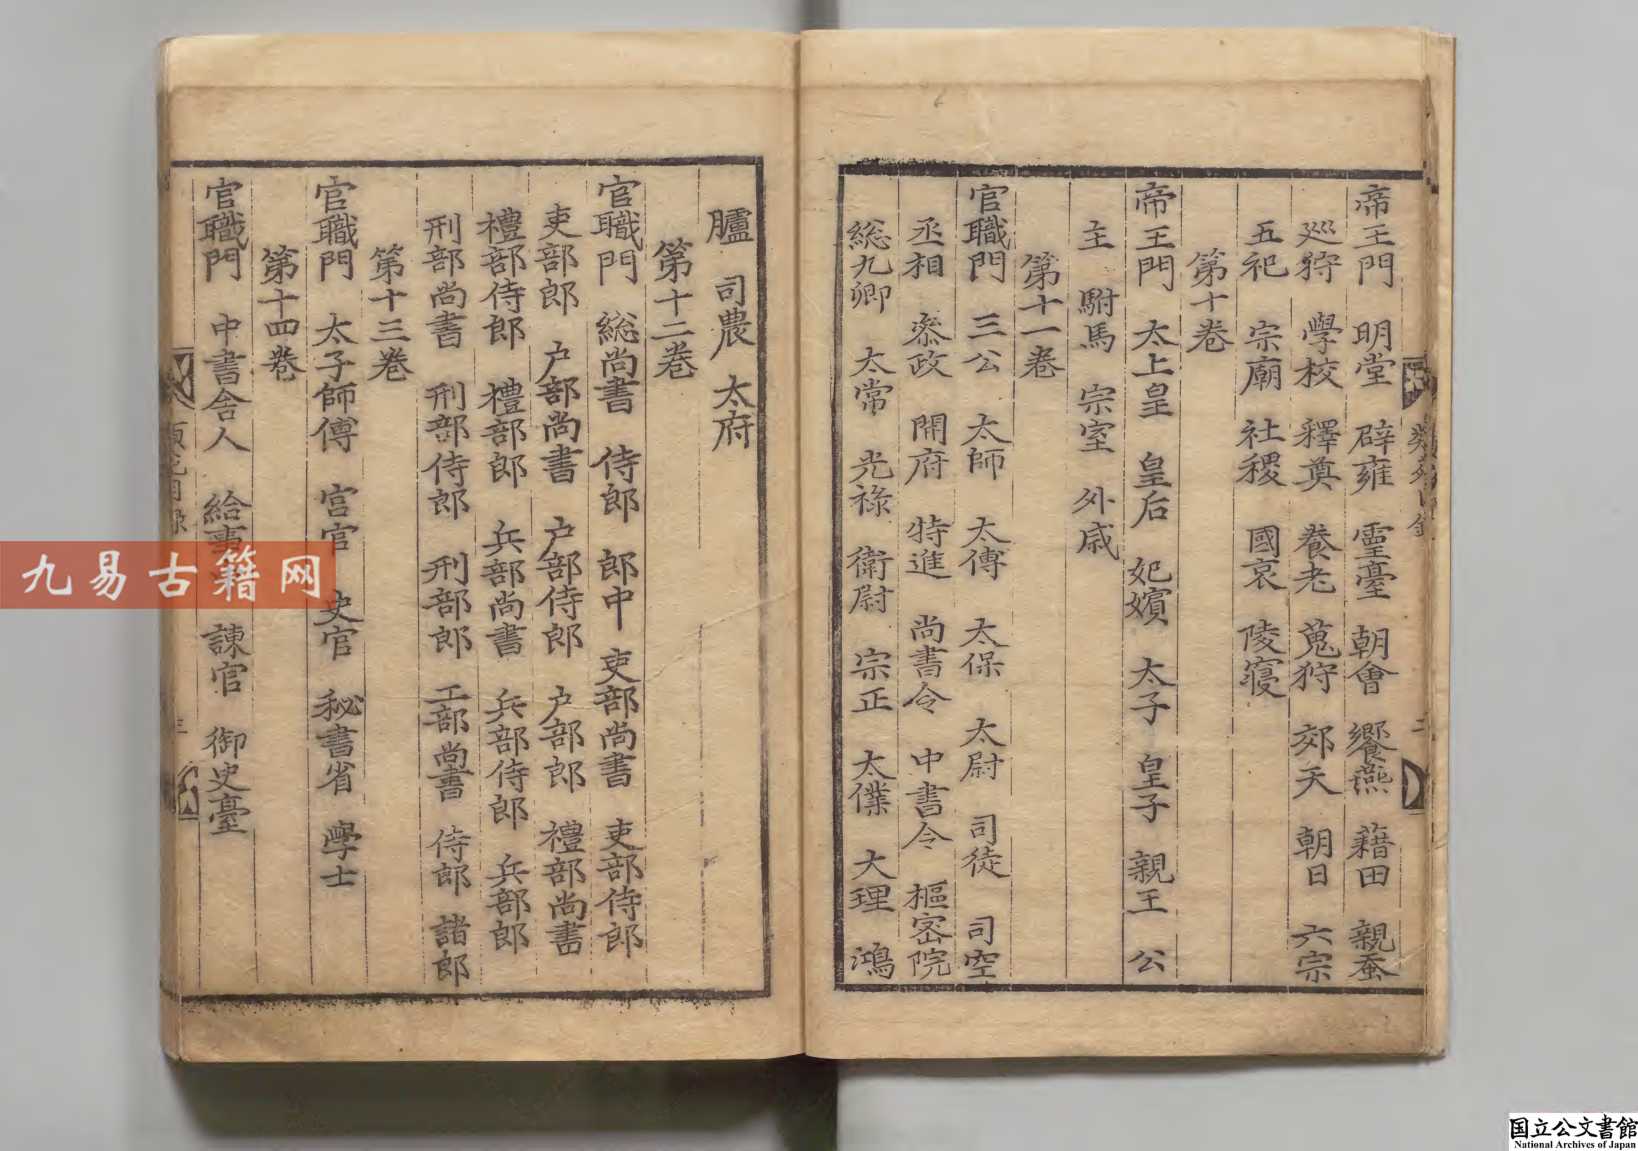 帝王門 明堂 辟雍 靈臺 朝會 饗燕 藉田 親蚕
巡狩 學校 釋奠 養老 蒐狩 郊天 朝日 六宗
五祀 宗廟 社稷 國哀 陵寢
第十卷
帝王門 太上皇 皇后 妃嬪 太子 皇子 親王 公
主 駙馬 宗室 外戚
第十一卷
官職門 三公 太師 太傅 太保 太尉 司徒 司空
丞相 叅政 開府 特進 尚書令 中書令 樞密院
総九卿 太常 光祿 衛尉 宗正 太僕 大理 鴻
臚 司農 太府
第十二卷
官職門 総尚書 侍郎 郎中 吏部尚書 吏部侍郎
吏部郎 户部尚書 户部侍郎 户部郎 禮部尚書
禮部侍郎 禮部郎 兵部尚書 兵部侍郎 兵部郎
刑部尚書 刑部侍郎 刑部郎 工部尚書 侍郎 諸郎
第十三卷
官職門 太子師傅 宮官 史官 秘書省 學士
第十四卷
官職門 中書舍人 給事 諫官 御史臺
九易古籍网
国立公文書館
National Archives of Japan